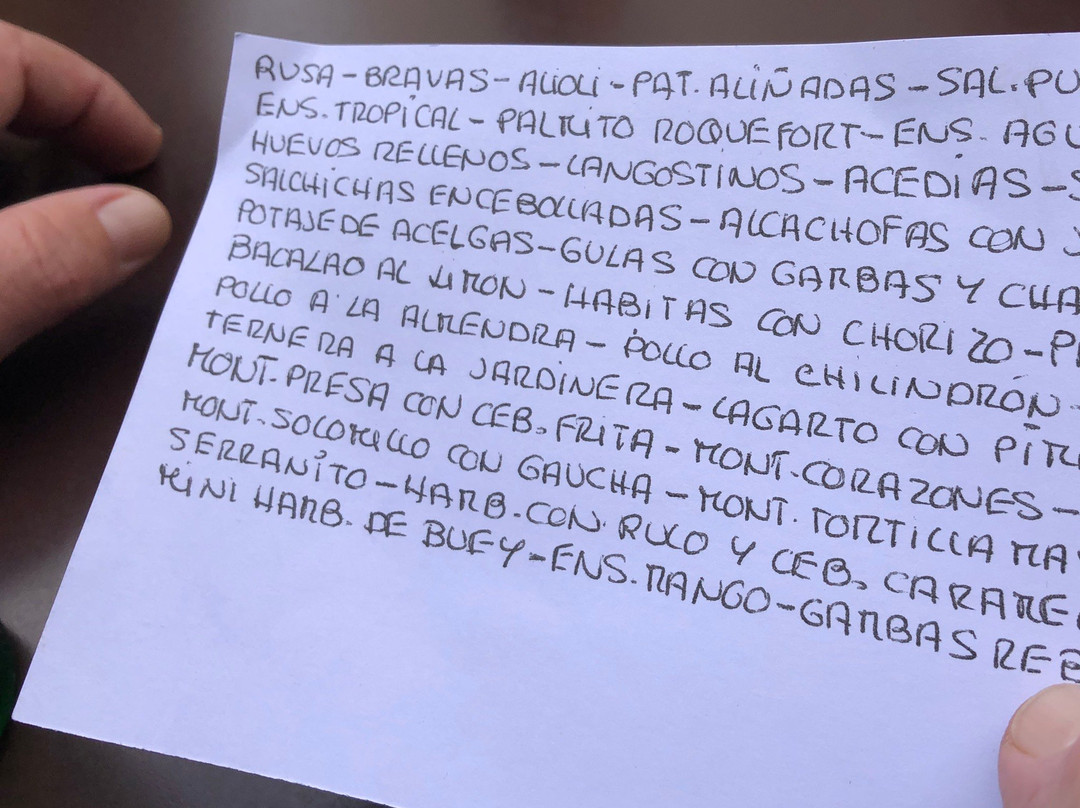 RUSA - BRAVAS - ALIOLI - PAT. ALIÑADAS - SAL. PU
ENS. TROPICAL - PALMITO ROQUEFORT - ENS. AGU
HUEVOS RELLENOS - LANGOSTINOS - ACEDÍAS - S
SALCHICHAS ENCEBOLLADAS - ALCACHOFAS CON J
POTAJE DE ACELGAS - GULAS CON GAMBAS Y CHA
BACALAO AL LIMON - HABITAS CON CHORIZO - P
POLLO A LA ALMENDRA - POLLO AL CHILINDRÓN -
TERNERA A LA JARDINERA - LAGARTO CON PIM
MONT. PRESA CON CEB. FRITA - MONT. CORAZONES -
MONT. SOLOMILLO CON GAUCHA - MONT. TORTILLA MA
SERRANÍTO - HAMB. CON RULO Y CEB. CARAME
MINI HAMB. DE BUEY - ENS. MANGO - GAMBAS REB